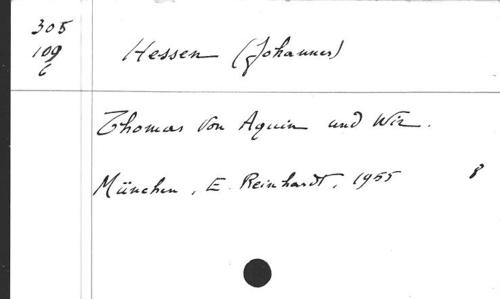 305
109
6
Hessen (Johannes)
Thomas von Aquin und Wir.
München, E. Reinhardt, 1955 8